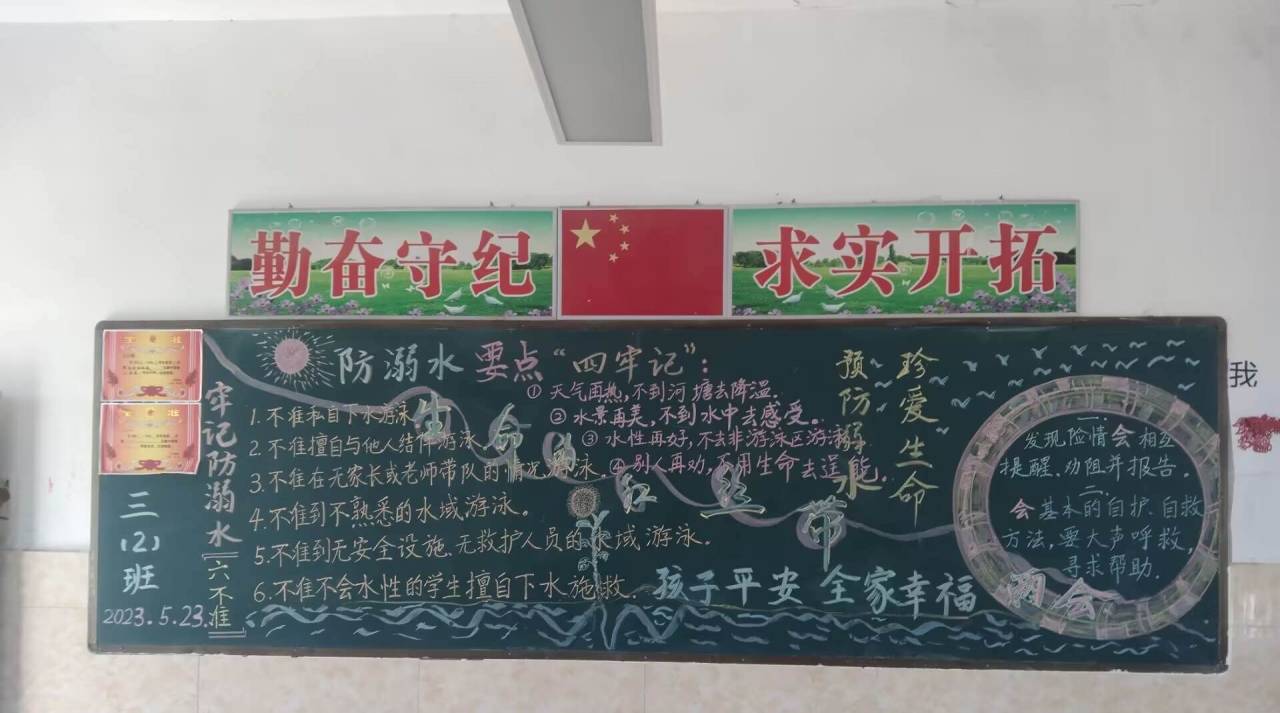 勤奋守纪
求实开拓
三(2)班
2023.5.23.
牢记防溺水『六不准』
防溺水要点“四牢记”:
① 天气再热,不到河塘去降温.
② 水景再美,不到水中去感受。
③ 水性再好,不去非游泳区游泳.
④ 别人再劝,不用生命去逞能.
1.不准私自下水游泳
2.不准擅自与他人结伴游泳
3.不准在无家长或老师带队的情况游泳
4.不准到不熟悉的水域游泳。
5.不准到无安全设施、无救护人员的水域游泳。
6.不准不会水性的学生擅自下水施救.
生命的红丝带
孩子平安 全家幸福
珍爱生命
预防溺水
一.
发现险情会相互
提醒、劝阻并报告。
二.
会基本的自护、自救
方法,要大声呼救,
寻求帮助.
两会
我